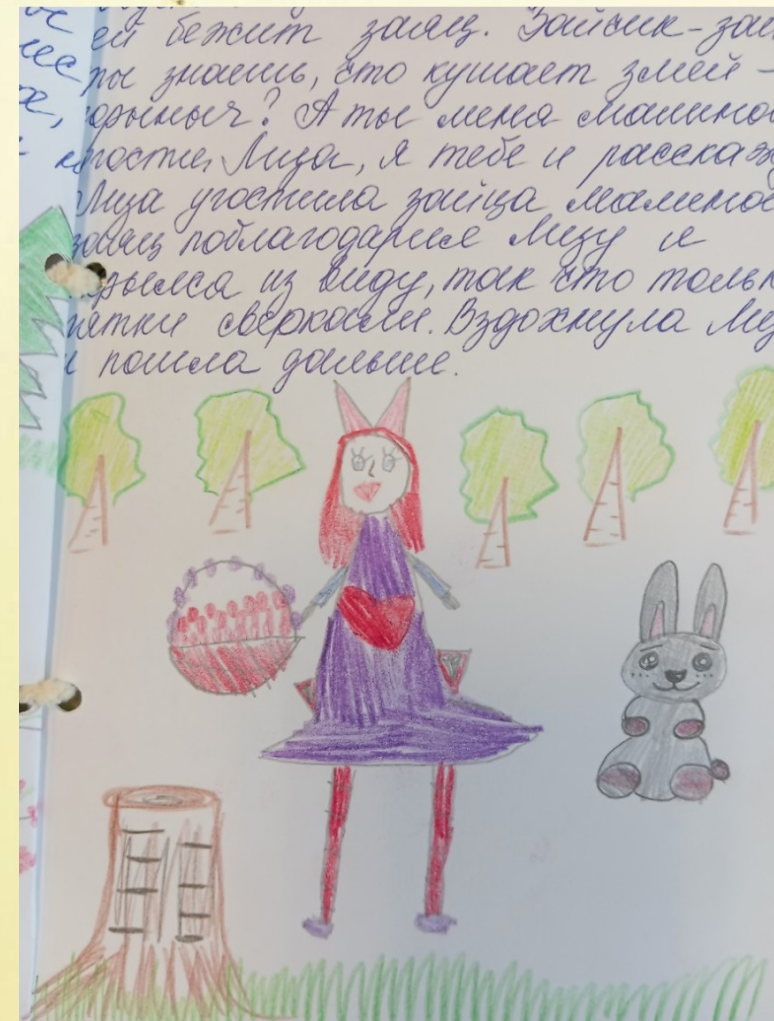 ей бежит заяц. Зайсик-зай
ты знаешь, сто кушает змей -
орыныч? А ты меня малино
гости, Лиза, я тебе и расскаж
Лиза угостила зайца малино
заяц поблагодарил Лизу и
рылся из виду, так сто тольк
пятки сверкали. Вздохнула Ли
и пошла дальше.